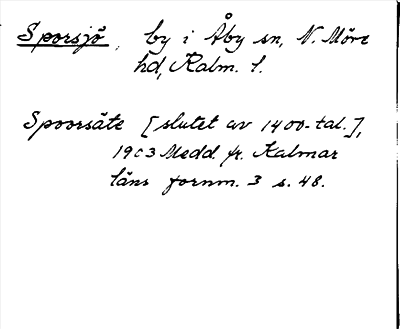 Sporsjö, by i Åby sn, N. Möre
hd, Kalm. l.
Spoorsäte [slutet av 1400-tal.],
1903 Medd fr. Kalmar
läns fornm. 3 s. 48.